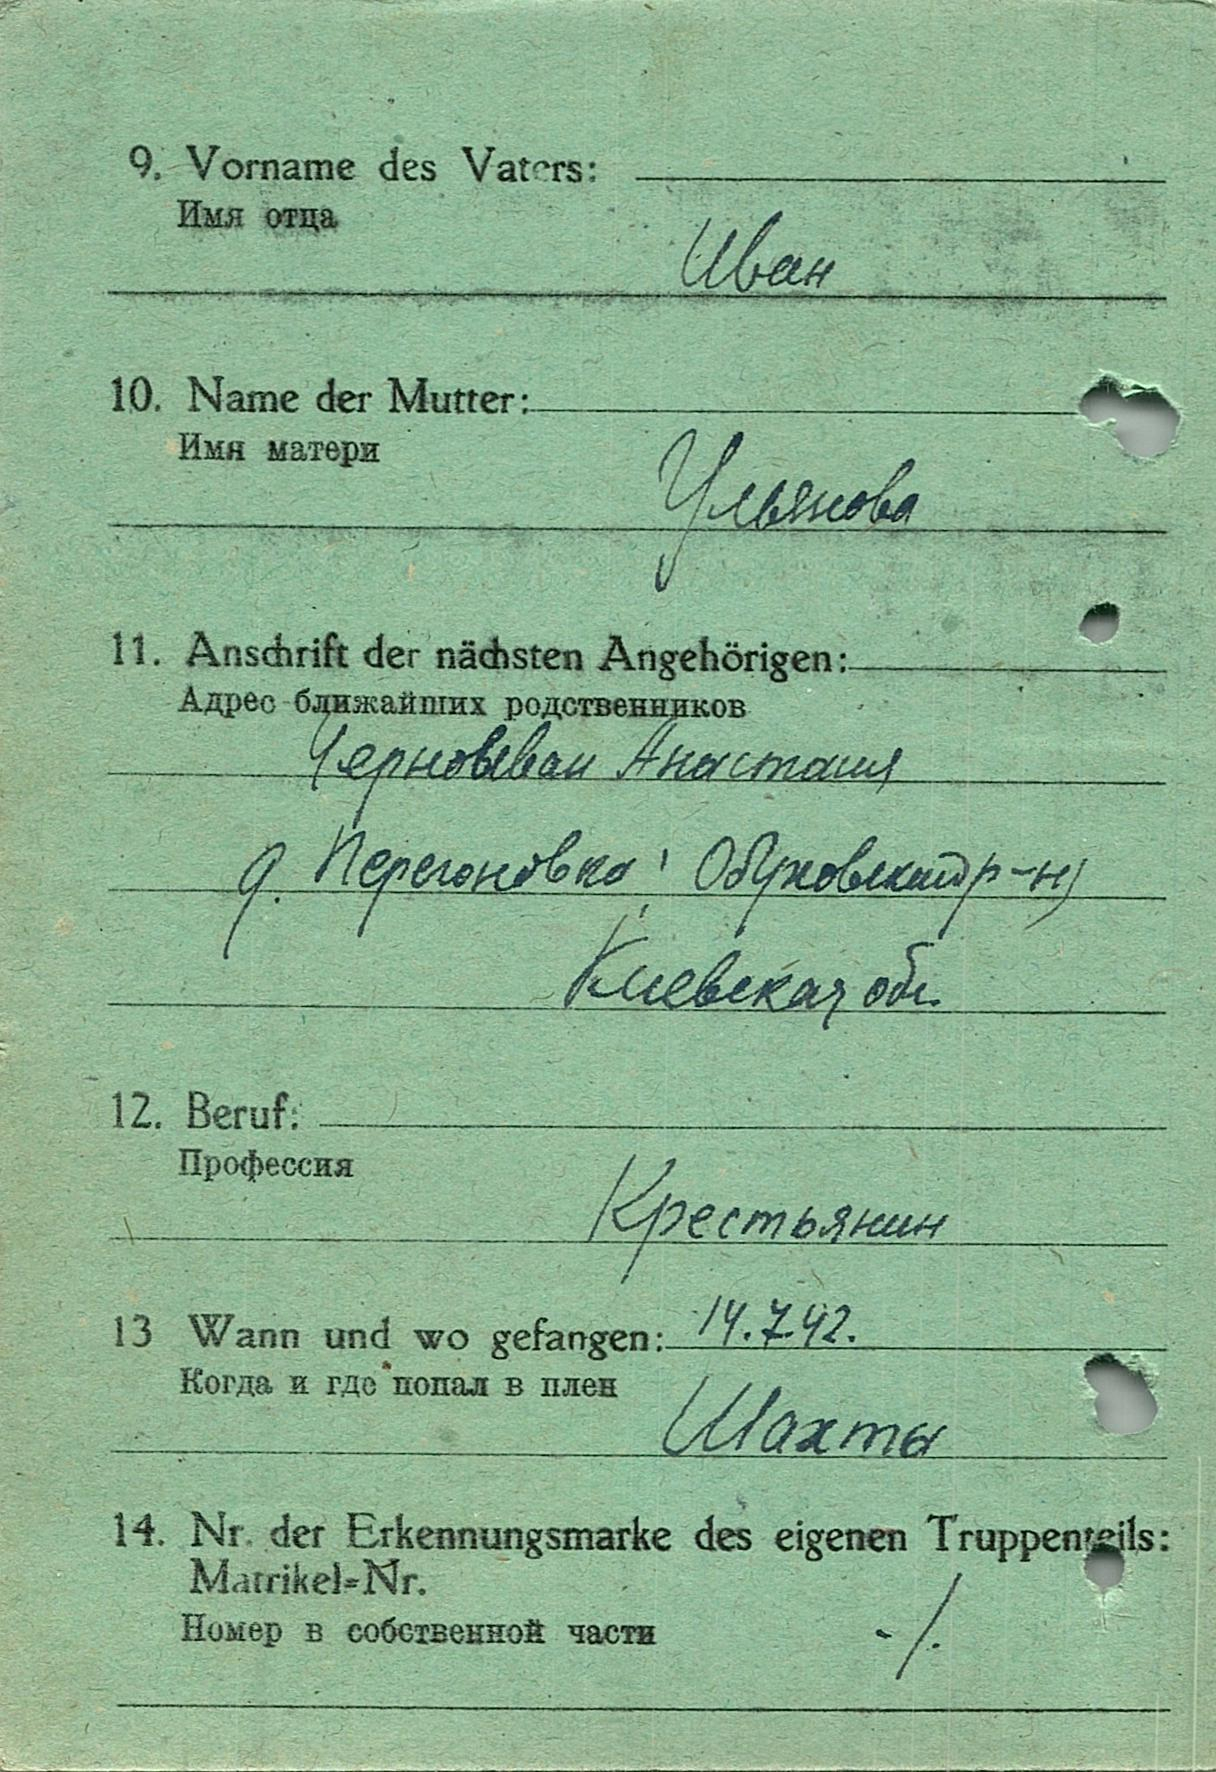 9. Vorname des Vaters:
Имя отца
Иван
10. Name der Mutter:
Имя матери
Ульянова
11. Anschrift der nächsten Angehörigen:
Адрес ближайших родственников
Анастасия
д. Перегоновка, Обуховский р-н
Киевская обл.
12. Beruf:
Профессия
Крестьянин
13 Wann und wo gefangen: 14.7.42.
Когда и где попал в плен
Шахты
14. Nr. der Erkennungsmarke des eigenen Truppenteils:
Matrikel-Nr.
Номер в собственной части
-/.